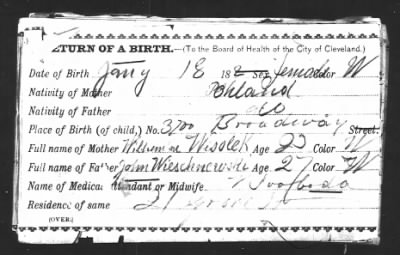 RETURN OF A BIRTH.—(To the Board of Health of the City of Cleveland.)
Date of Birth Jany 18 188 Sex female Color W
Nativity of Mother Pohland
Nativity of Father do
Place of Birth (of child,) No. 3700 Broadway Street.
Full name of Mother Age 23 Color W
Full name of Father John Wieschnewski Age 27 Color W
Name of Medical Attendant or Midwife
Residence of same 21
(OVER.)